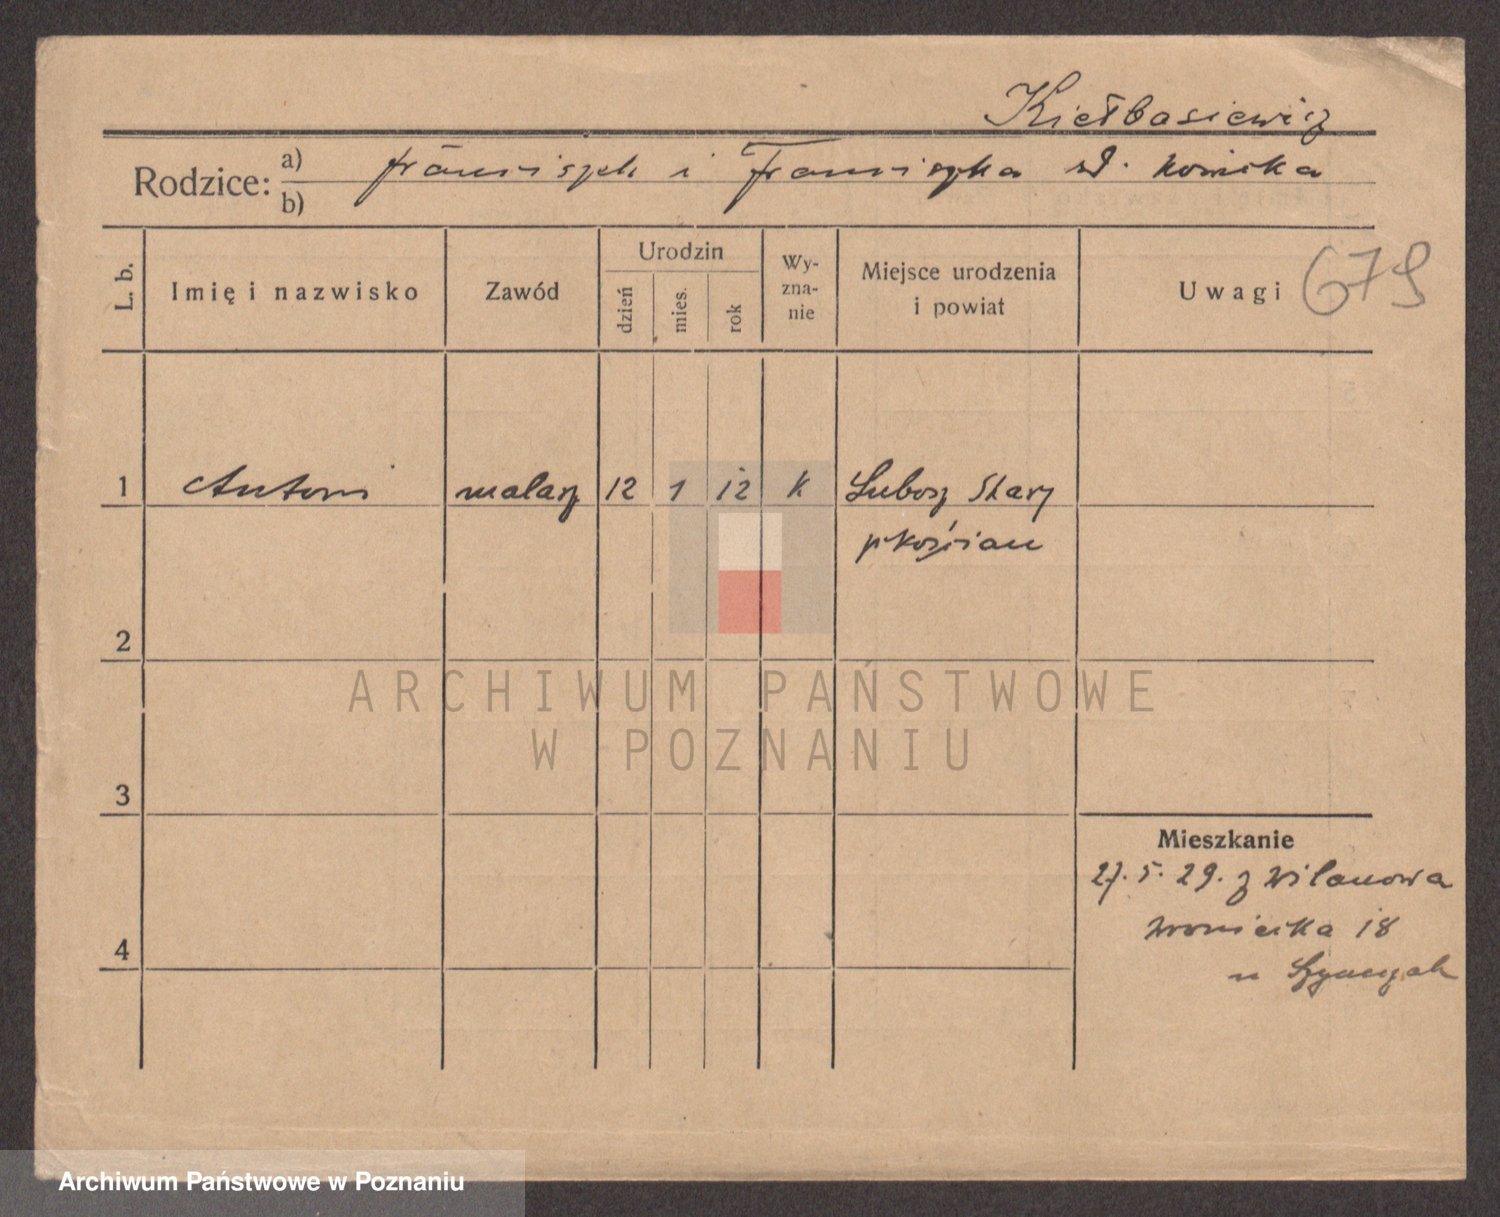 Kiełbasiewicz
Rodzice: a) Franciszek i Franciszka
b)
L. b.
Imię i nazwisko
Zawód
Urodzin
dzień
mies.
rok
Wy-
zna-
nie
Miejsce urodzenia
i powiat
Uwagi
679
1 Antoni malarz 12 1 12 k Lubosz Stary
p Kościan
2
3
4
Mieszkanie
27. 5. 29. z Wilanowa
Wroniecka 18
u
ARCHIWUM PAŃSTWOWE
W POZNANIU
Archiwum Państwowe w Poznaniu